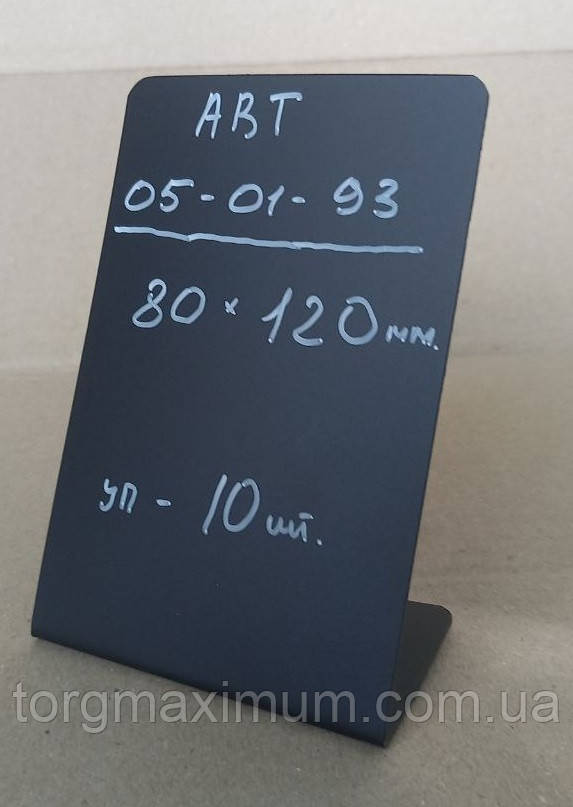 АВТ
05-01-93
80 × 120 мм.
уп - 10 шт.
torgmaximum.com.ua